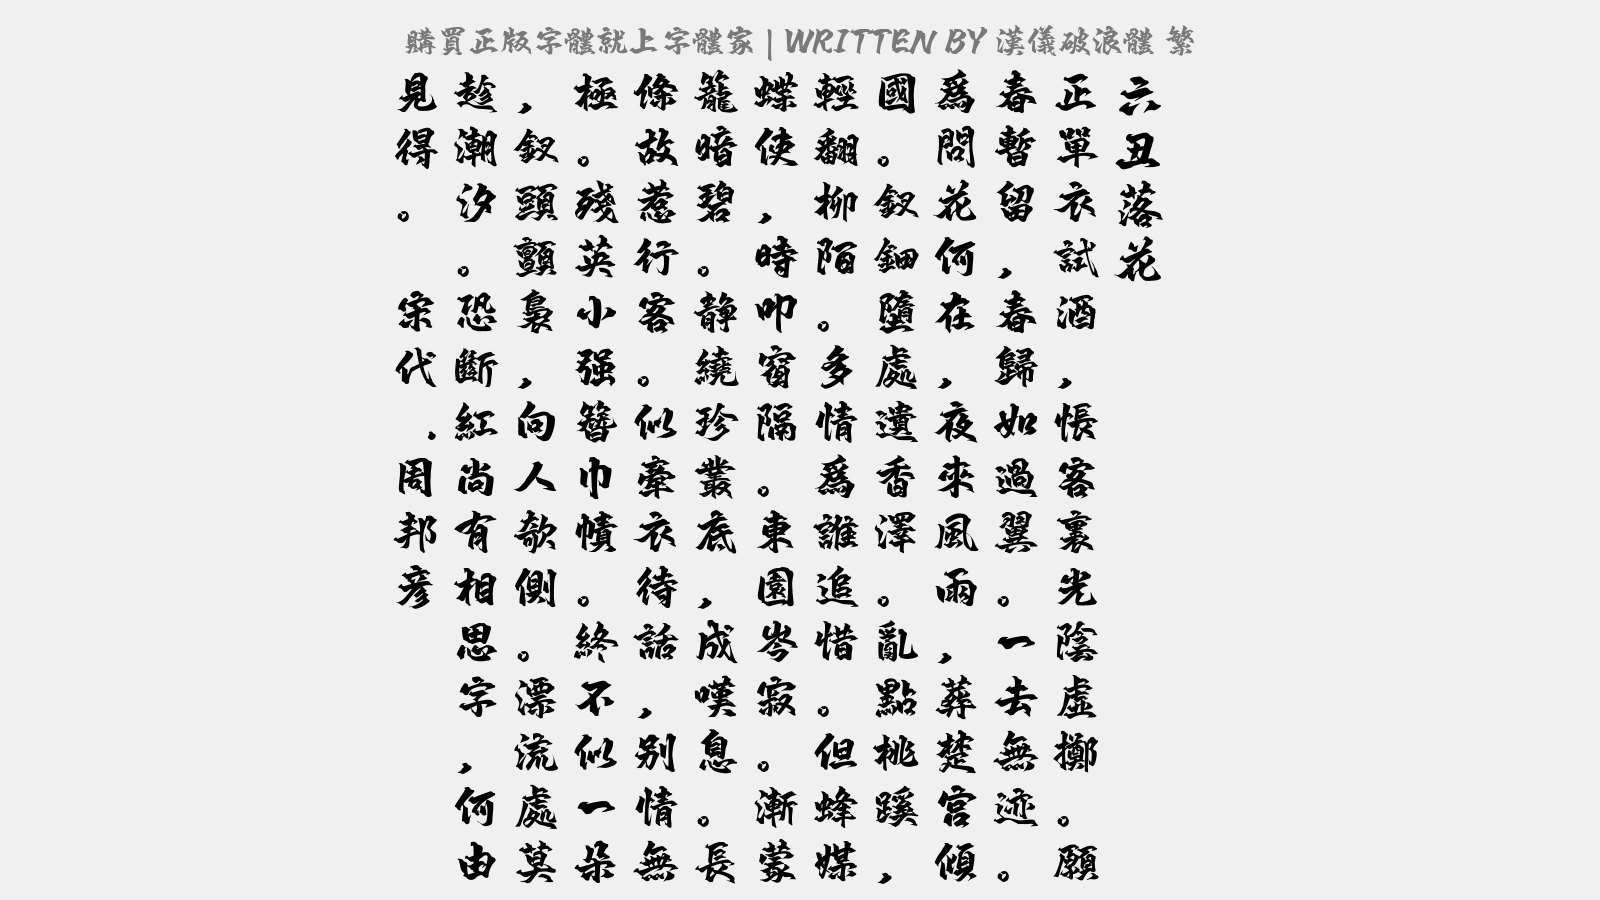 購買正版字體就上字體家 | WRITTEN BY 漢儀破浪體 繁
六丑落花
正單衣試酒，悵客裏光陰虛擲。願
春暫留，春歸如過翼。一去無迹。
爲問花何在，夜來風雨，葬楚宮傾
國。釵鈿墮處遺香澤。亂點桃蹊，
輕翻柳陌。多情爲誰追惜。但蜂媒
蝶使，時叩窗隔。東園岑寂。漸蒙
籠暗碧。靜繞珍叢底，成嘆息。長
條故惹行客。似牽衣待話，別情無
極。殘英小强簪巾幘。終不似一朵
，釵頭顫裊，向人欹側。漂流處莫
趁潮汐。恐斷紅尚有相思字，何由
見得。宋代.周邦彥